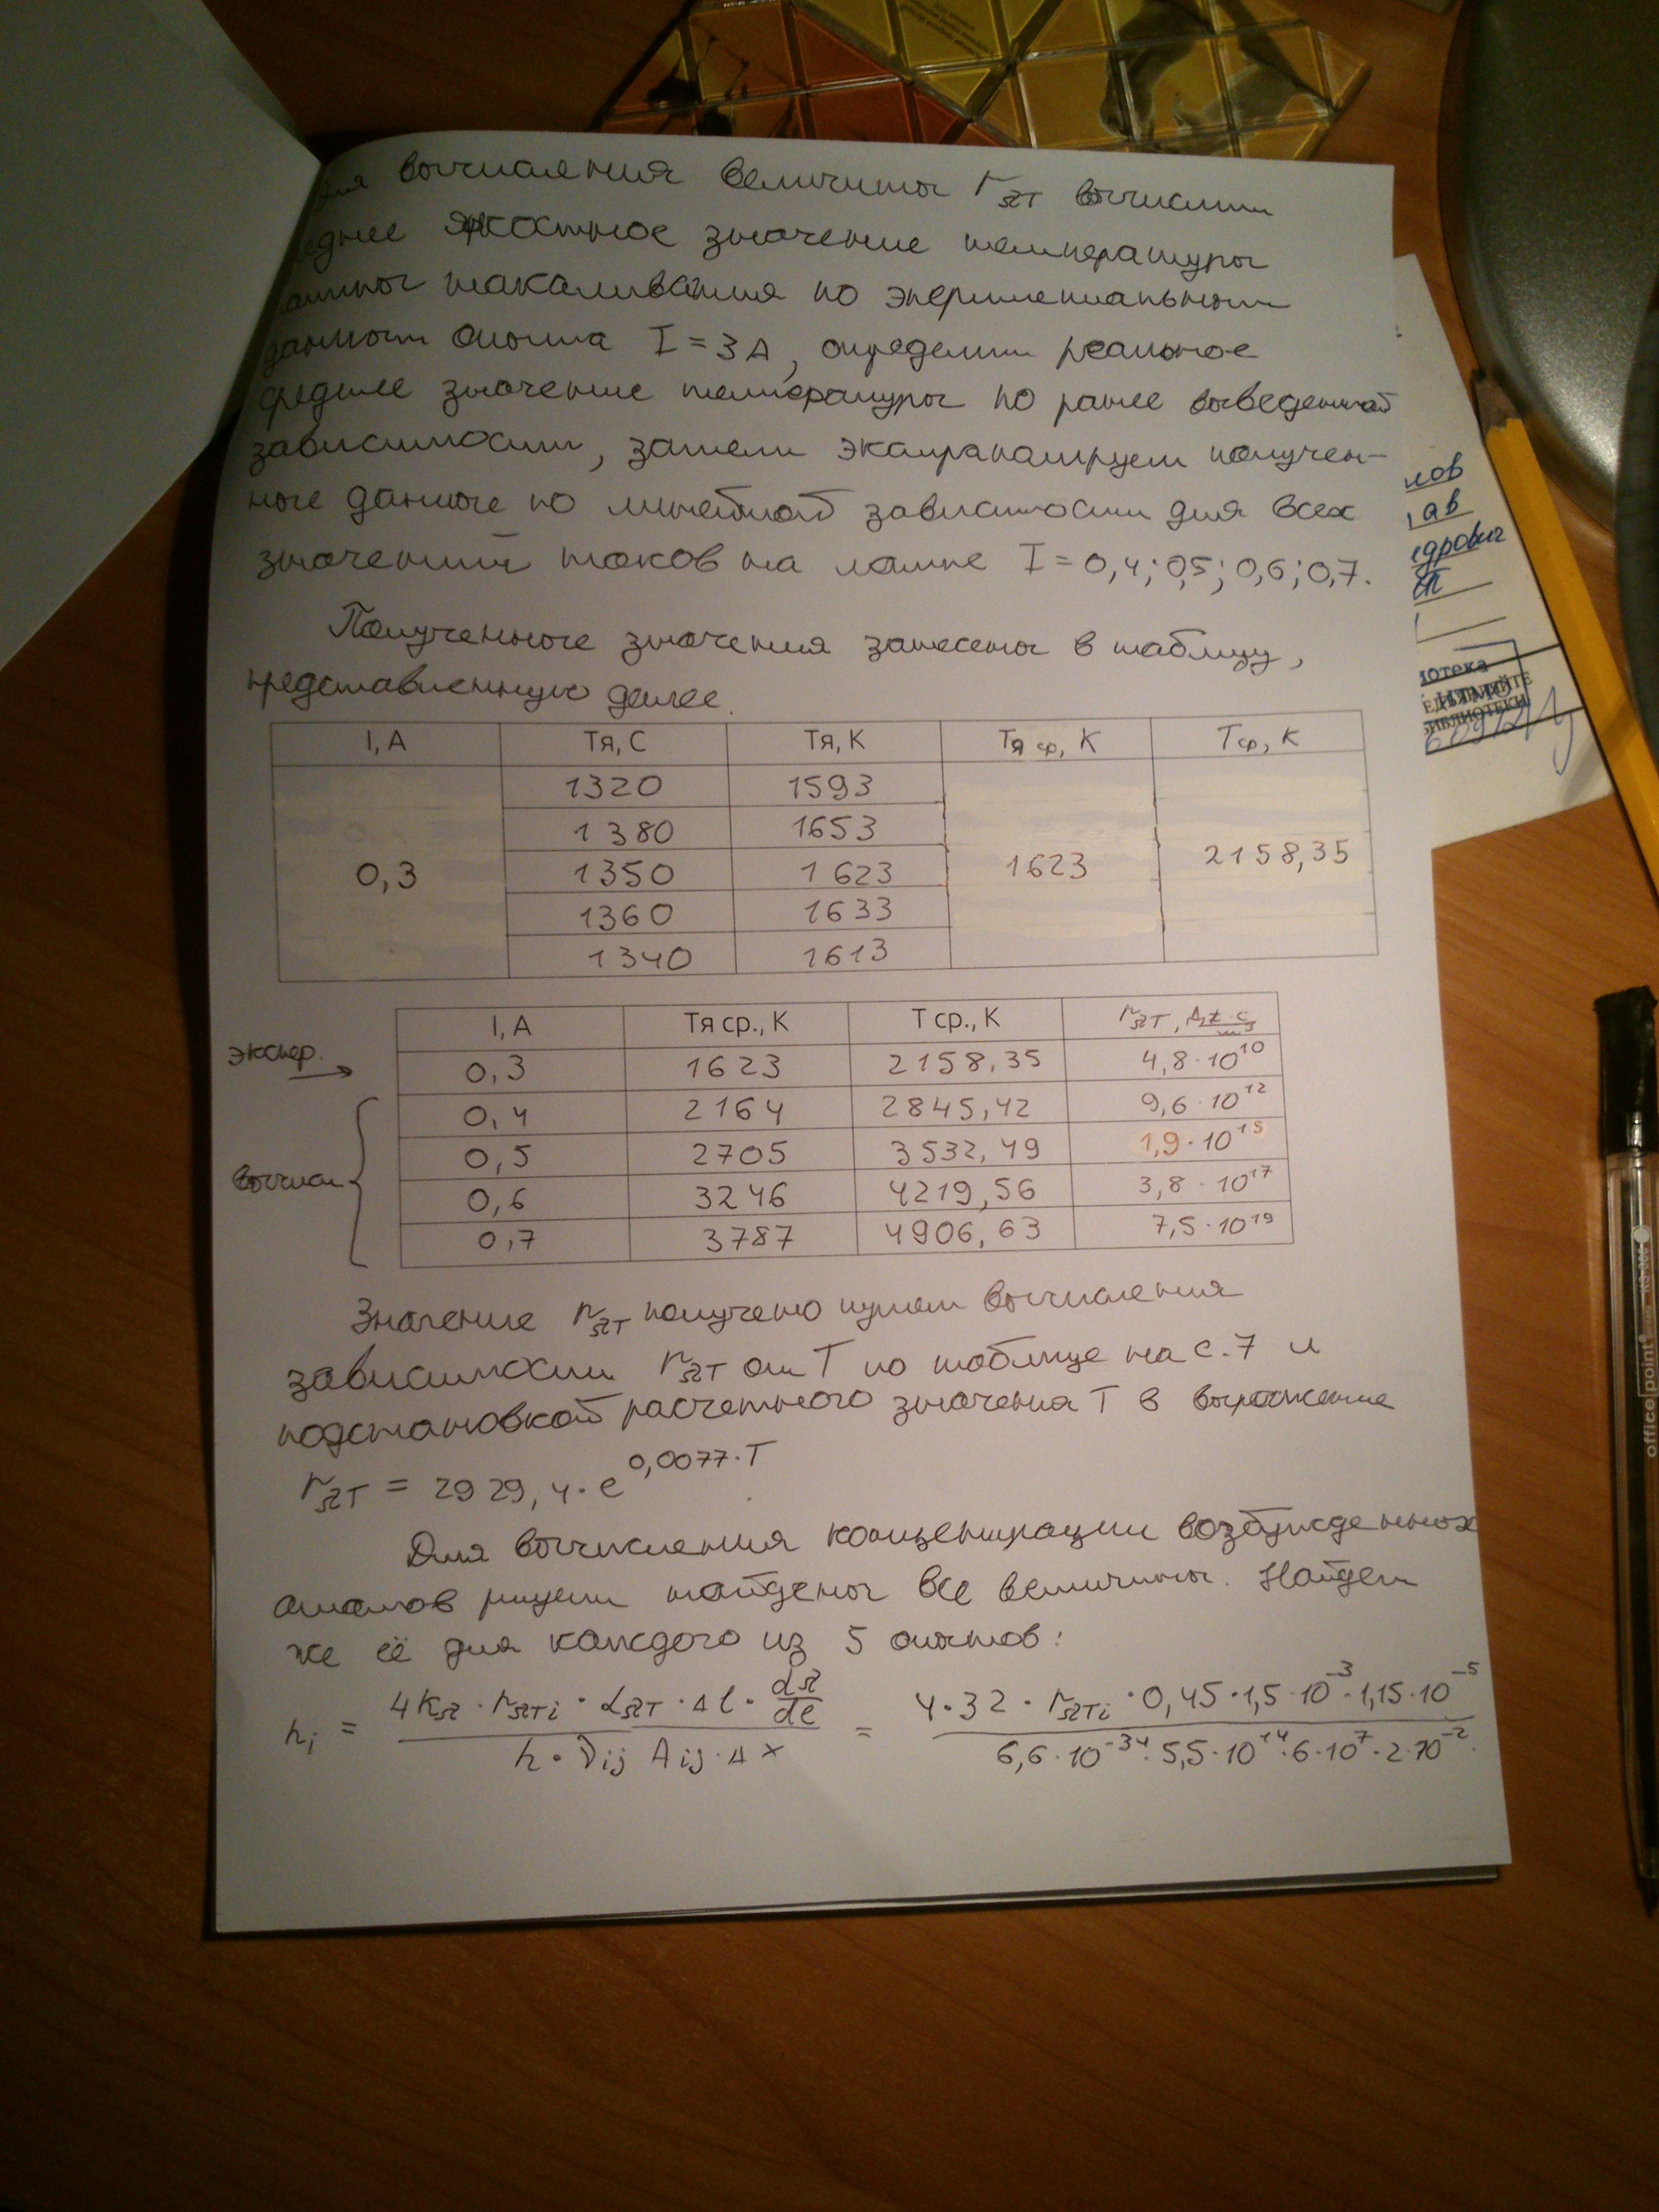 для вычисления величины r_ΩT вычислим
среднее яркостное значение температуры
лампы накаливания по эксперименталным
данным опыта I = 3 А, определим реальное
среднее значение температуры по ранее выведенной
зависимости, затем экстраполируем получен-
ные данные по линейной зависимости для всех
значений токов на лампе I = 0,4; 0,5; 0,6; 0,7.
Полученные значения занесены в таблицу,
представленную далее.
I, А Тя, С Тя, К Тя ср, К Тср, К
1320 1593
1380 1653
0,3 1350 1623 1623 2158,35
1360 1633
1340 1613
I, А Тя ср., К Т ср., К r_ΩT, Дж·с/м³
экспер. → 0,3 1623 2158,35 4,8·10^10
0,4 2164 2845,42 9,6·10^12
вычисл. 0,5 2705 3532,49 1,9·10^15
0,6 3246 4219,56 3,8·10^17
0,7 3787 4906,63 7,5·10^19
Значение r_ΩT получено путем вычисления
зависимости r_ΩT от T по таблице на с. 7 и
подстановкой расчетного значения T в выражение
r_ΩT = 2929,4·e^0,0077·T
Для вычисления концентрации возбужденных
атомов найдены все величины. Найдем
же её для каждого из 5 опытов:
n_i = 4K_Ω·r_ΩTi·α_ΩT·Δl·dΩ/dl / h·ν_ij A_ij·Δx = 4·32·r_ΩTi·0,45·1,5·10^-3·1,15·10^-5 / 6,6·10^-34·5,5·10^14·6·10^7·2·10^-2.
лов
ав
дрович
иотека
БИБЛИОТЕКИ
officepoint